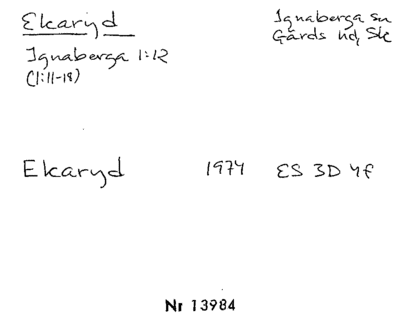 Ekaryd
Ignaberga sn
Gärds hd, Sk
Ignaberga 1:12
(1:11-18)
Ekaryd 1974 ES 3D 4f
Nr 13984